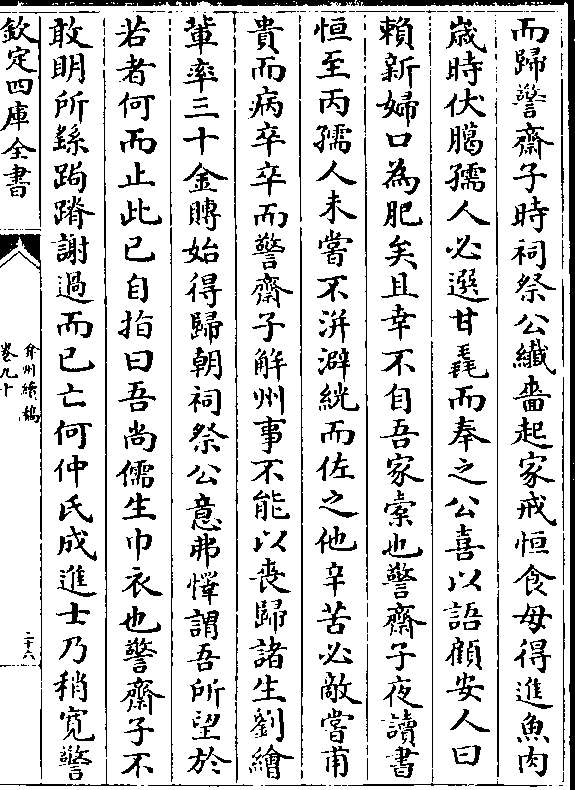 而歸警齋子時祠祭公纎嗇起家戒恒食毋得進魚肉
嵗時伏臈孺人必選甘毳而奉之公喜以語顧安人曰
賴新婦口為肥矣且幸不自吾家索也警齋子夜讀書
恒至丙孺人未嘗不洴澼絖而佐之他辛苦必敵嘗甫
貴而病卒卒而警齋子解州事不能以喪歸諸生劉繪
輩率三十金賻始得歸朝祠祭公意弗懌謂吾所望於
若者何而止此已自指曰吾尚儒生巾衣也警齋子不
敢明所繇跼蹐謝過而已亡何仲氏成進士乃稍寛警
欽定四庫全書
弇州續稿
卷九十
二十六